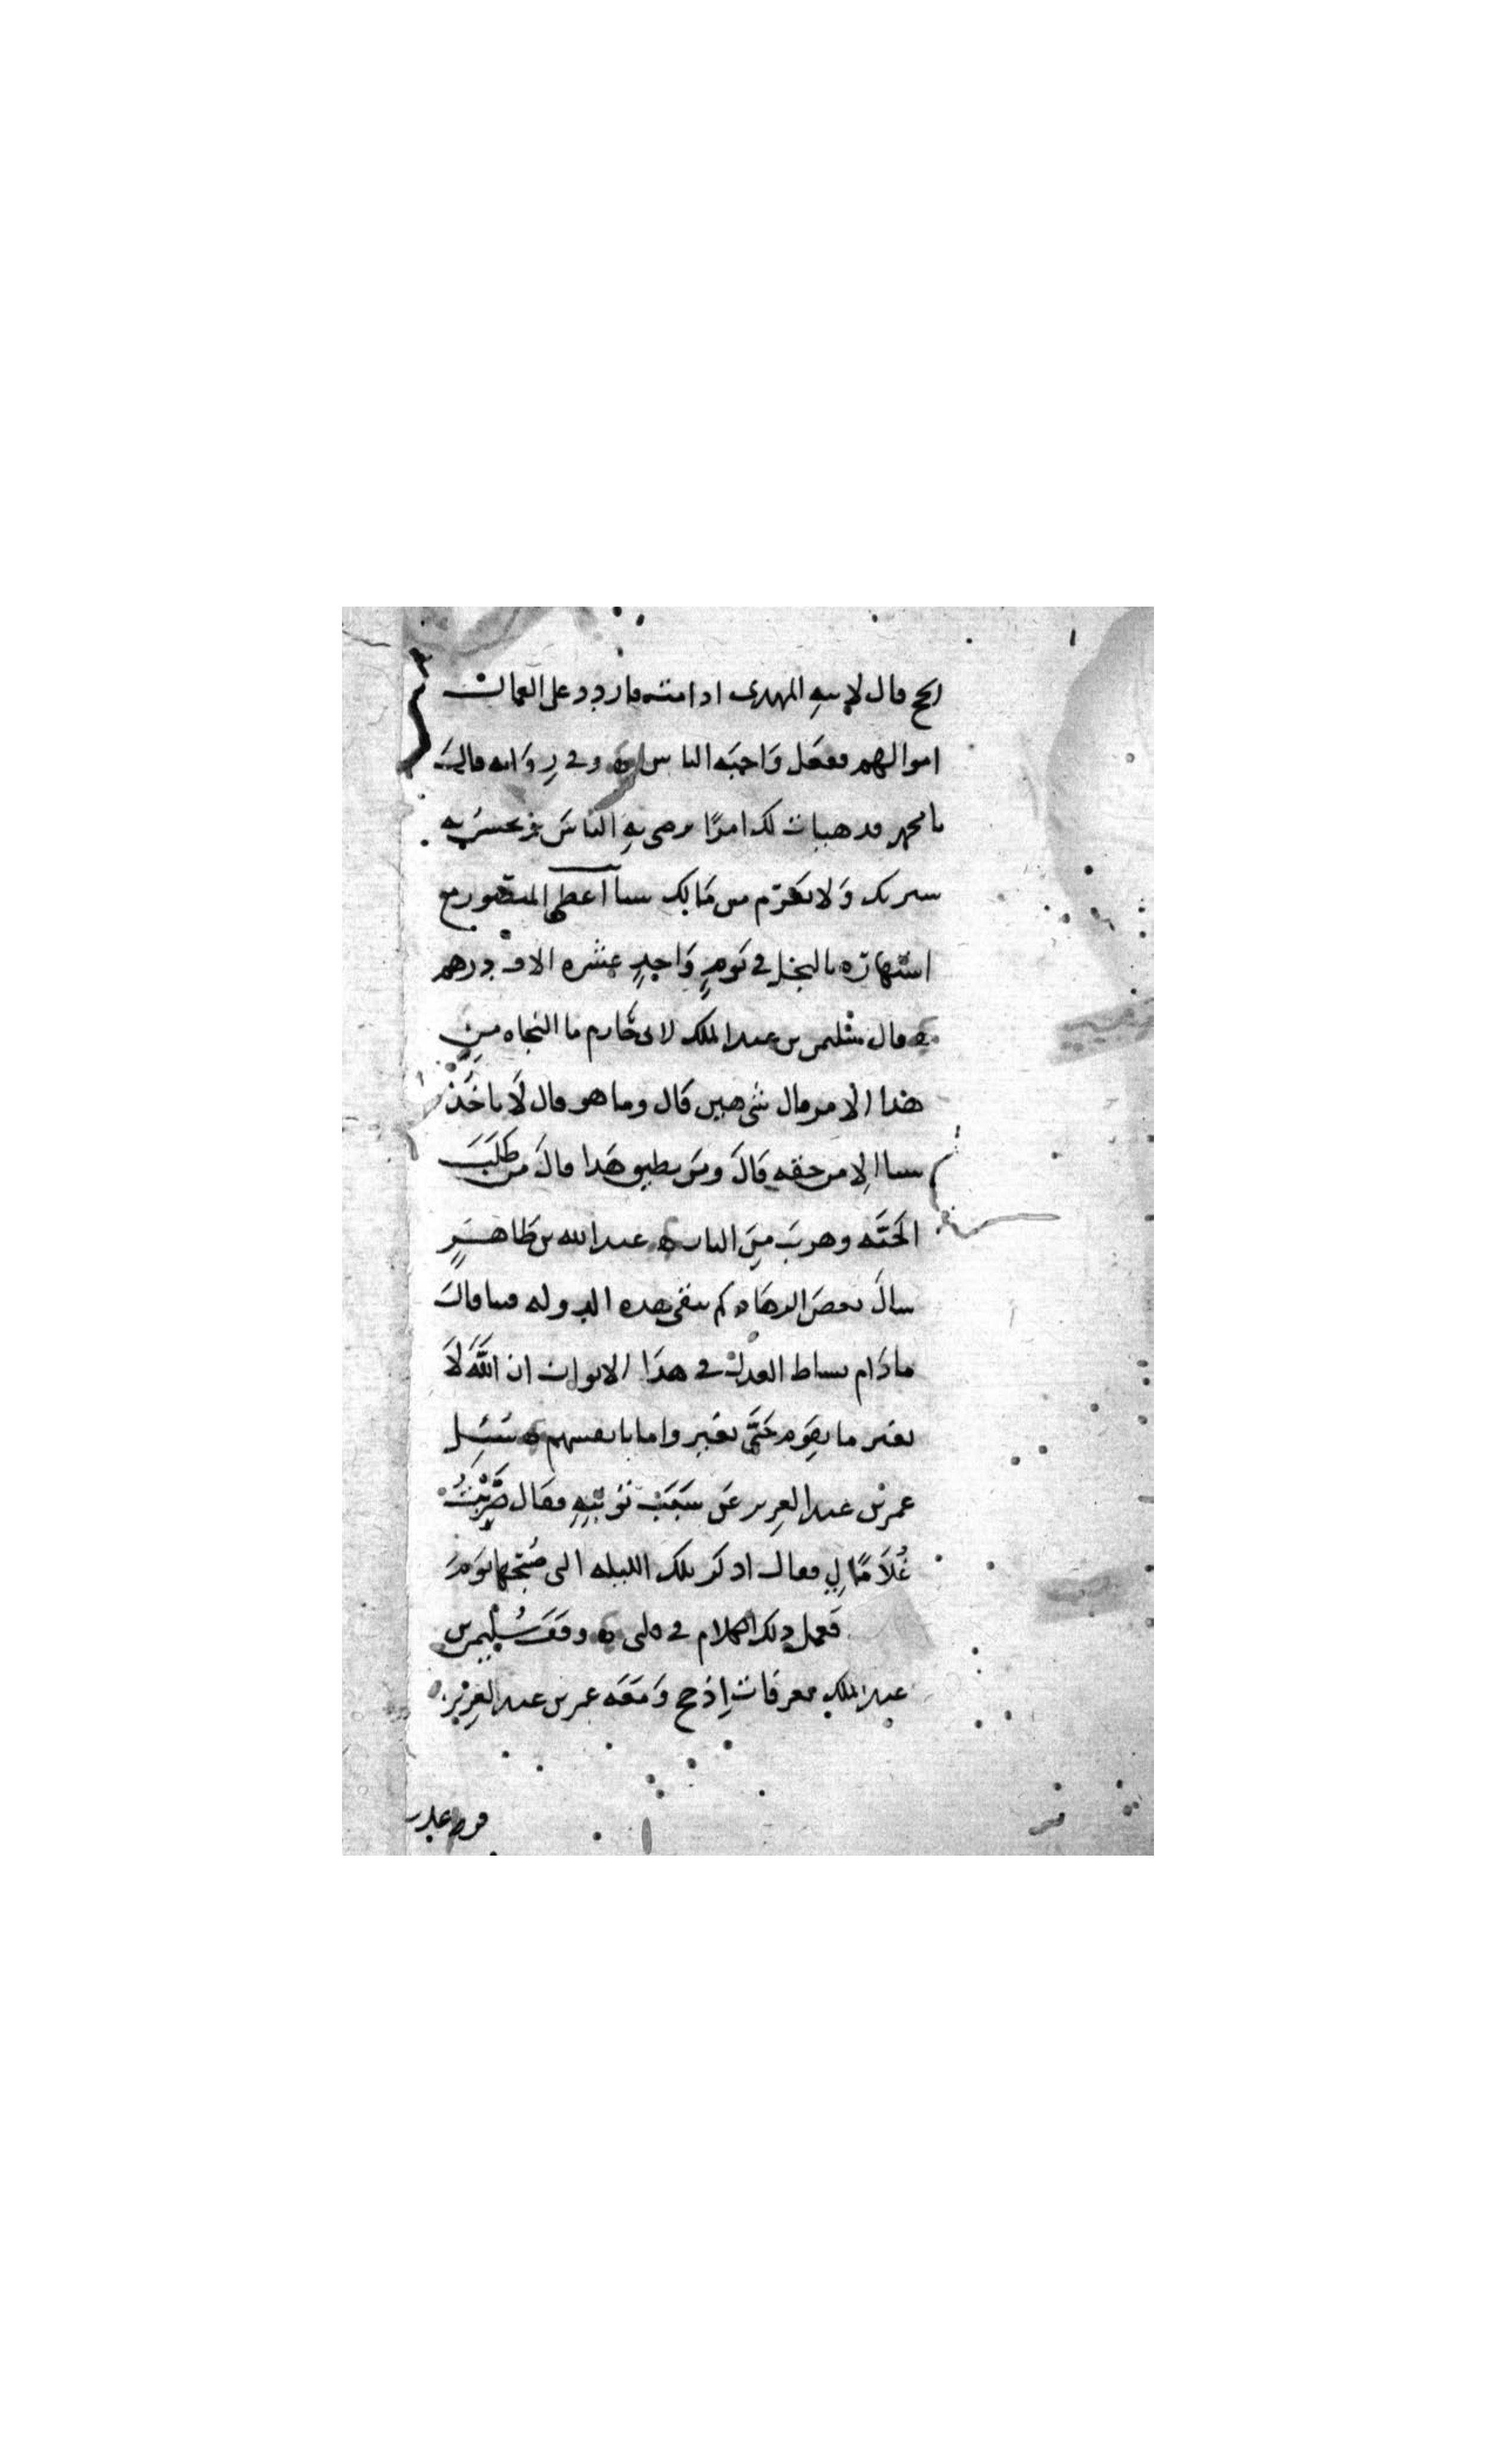 الحج قال لابنه المهدى اذا مت فاردد على العمال
اموالهم ففعل وَاحبَه الناس ٥ وفي رِوَايه قالَ
يا محمد قد هيات لك امرًا ترضى بهِ الناسَ وتحسنُ به
سيرتك وَلا تغرَم من مَالك شيئا اعطى المنصور مع
اشتهاره بالبخل في يَومٍ وَاحِدٍ عشره الاف درهم
٥ قال سُليمن بن عبد الملك لابى حَازم ما النجاه مِن
هذا الامر قال شى هين قَال وما هو قال لَا ياخُذ
شيئا اِلا من حقه قَالَ ومَن يطيق هَذا قالَ مَن طَلَبَ
الجَنَّه وهربَ مِنَ النار ٥ عبد الله بن طَاهِرٍ
سالَ بعضَ الزهَاد كم تبقى هذه الدوله فينا قالَ
مادَام بساط العدل في هذَا الايوان ان اللَّهَ لَا
يغير ما بقَوم حَتَّى يغيروا ما بانفسهم ٥ سُئِلَ
عمر بن عبد العزيز عَن سَبَب تَوبَتِهِ فقال ضَرَبْتُ
غُلَامًا لي فقال اذكر تلك الليله التى صُبحها يَومَ
فعمل ذلك الكلام في قلبى ٥ وقفَ سُليمن بن
عبد الملك بعرفات اِذ حج وَمَعَه عمر بن عبد العزيز